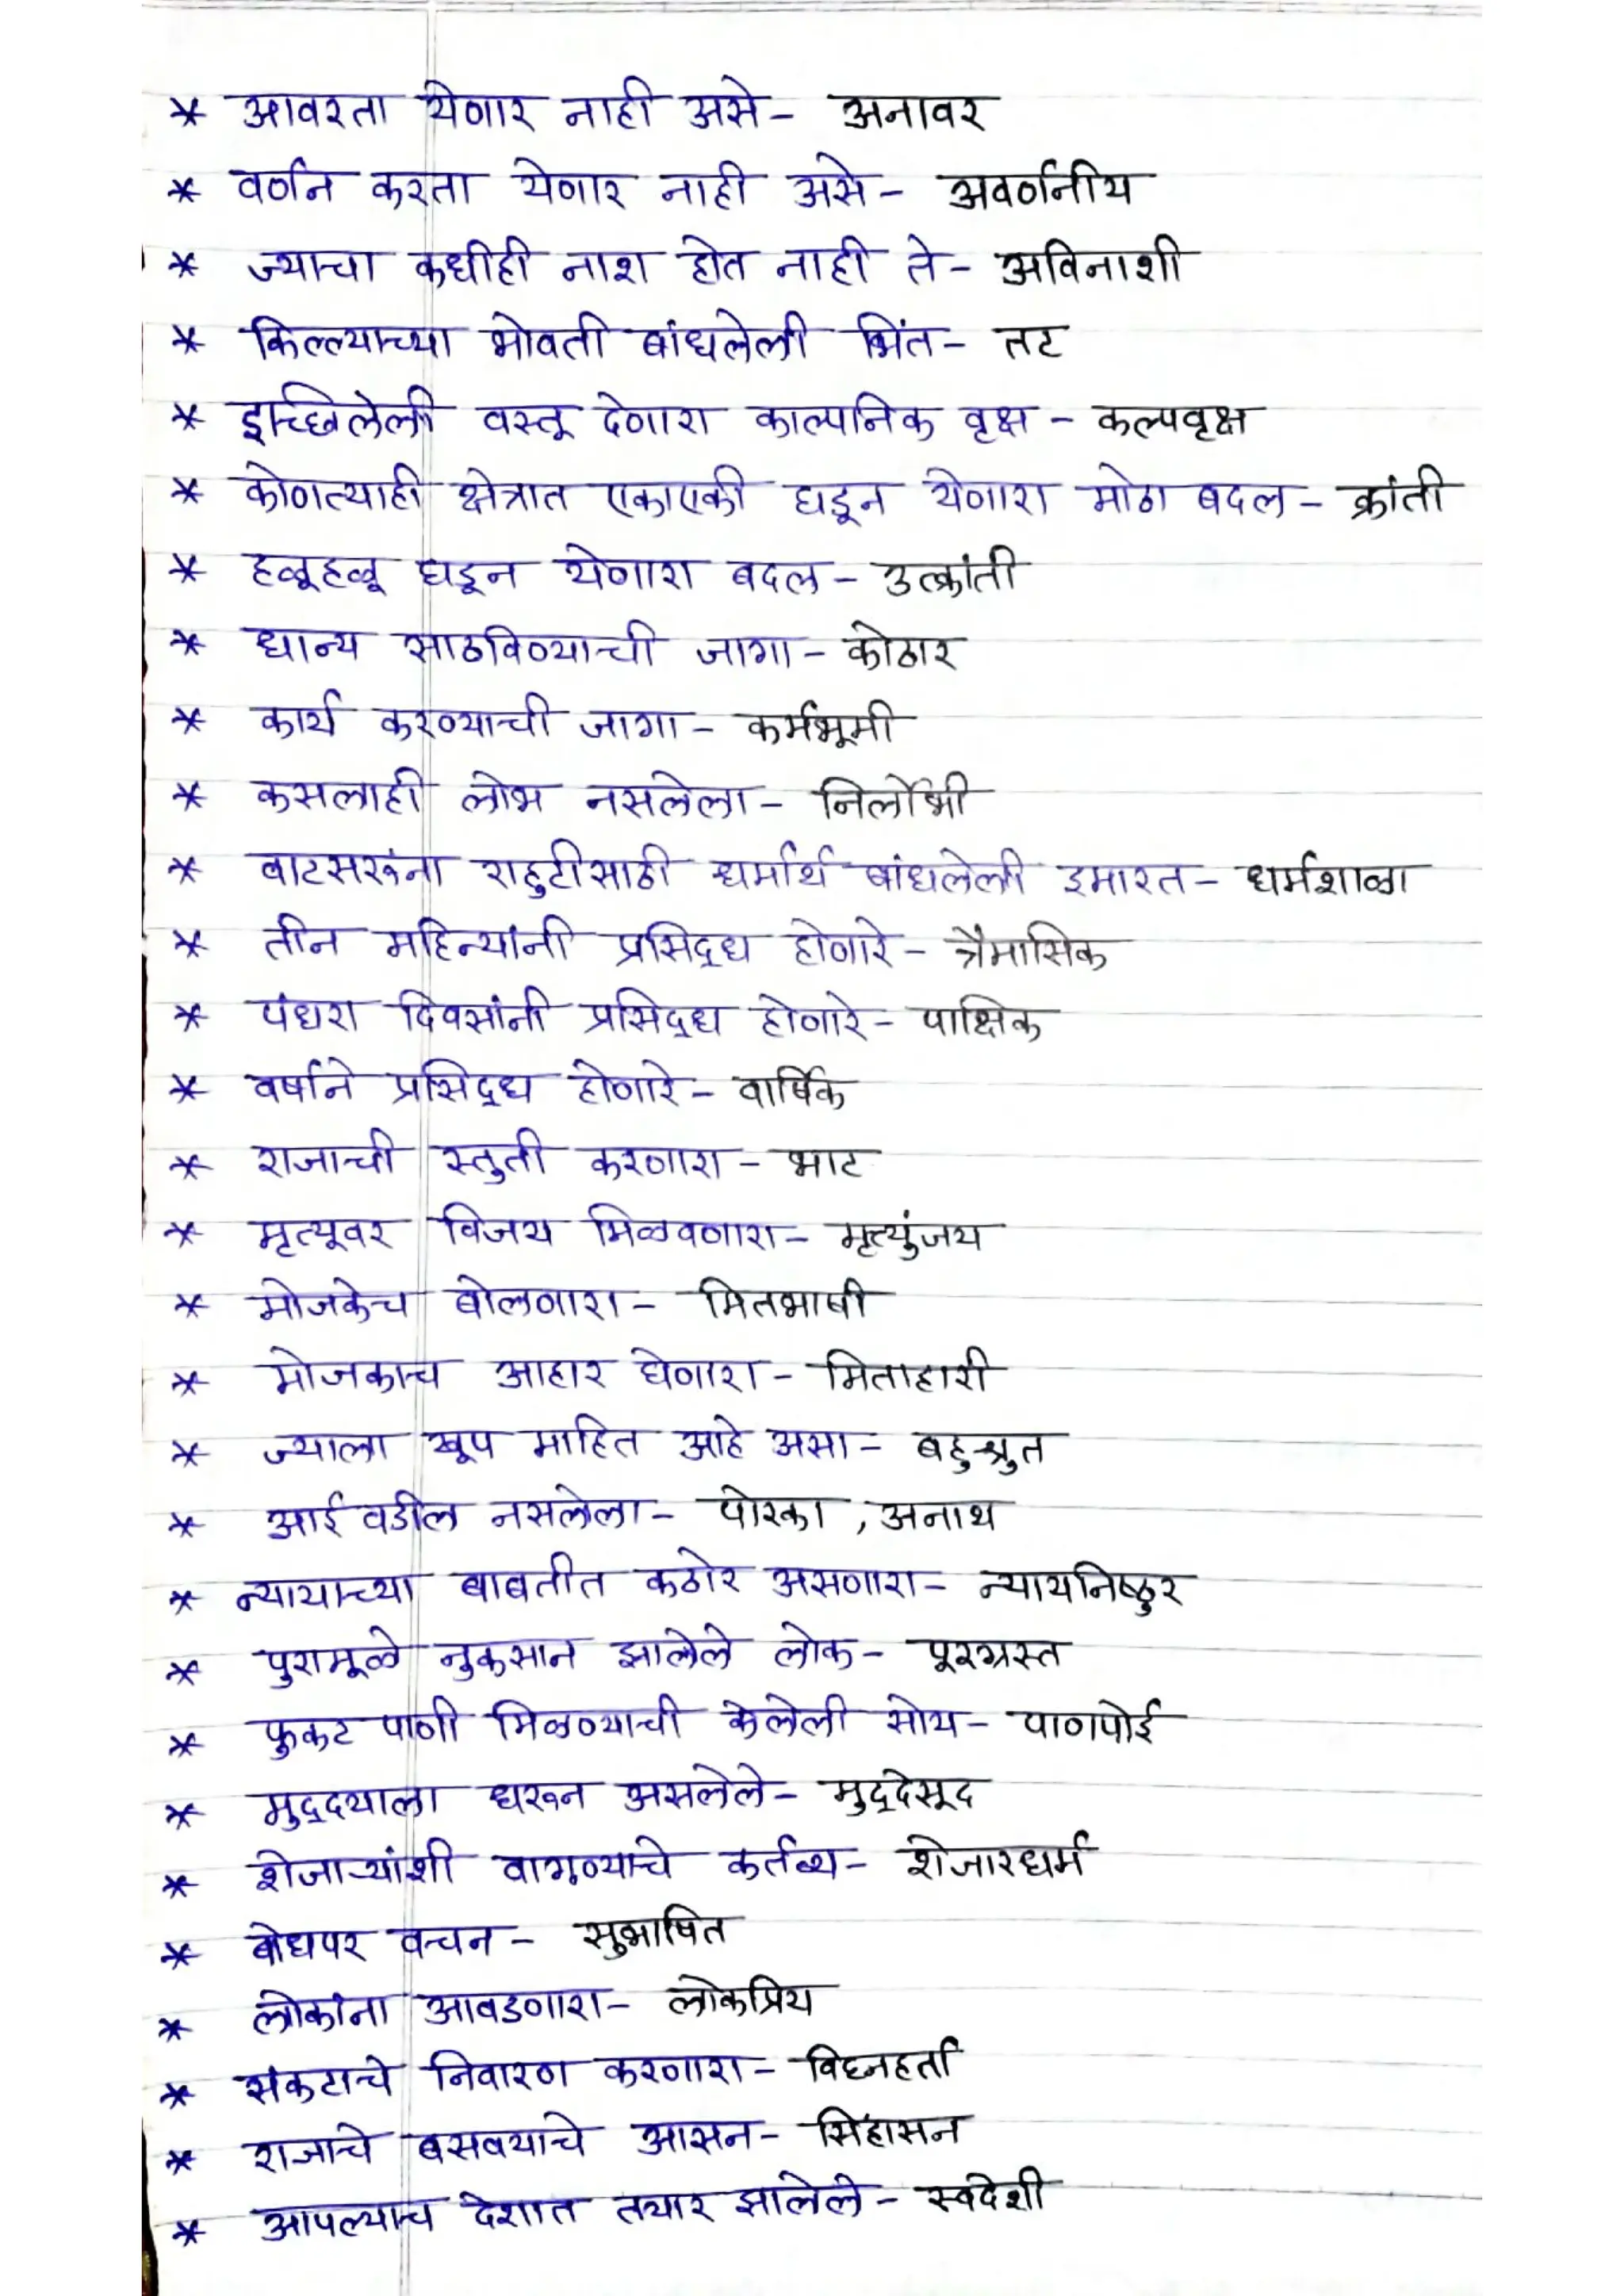 * आवरता येणार नाही असे - अनावर
* वर्णन करता येणार नाही असे - अवर्णनीय
* ज्याचा कधीही नाश होत नाही ते - अविनाशी
* किल्ल्याच्या भोवती बांधलेली भिंत - तट
* इच्छिलेली वस्तू देणारा काल्पनिक वृक्ष - कल्पवृक्ष
* कोणत्याही क्षेत्रात एकाएकी घडून येणारा मोठा बदल - क्रांती
* हळूहळू घडून येणारा बदल - उत्क्रांती
* धान्य साठविण्याची जागा - कोठार
* कार्य करण्याची जागा - कर्मभूमी
* कसलाही लोभ नसलेला - निर्लोभी
* वाटसरूंना राहुटीसाठी धर्मार्थ बांधलेली इमारत - धर्मशाळा
* तीन महिन्यांनी प्रसिद्ध होणारे - त्रैमासिक
* पंधरा दिवसांनी प्रसिद्ध होणारे - पाक्षिक
* वर्षाने प्रसिद्ध होणारे - वार्षिक
* राजाची स्तुती करणारा - भाट
* मृत्यूवर विजय मिळवणारा - मृत्युंजय
* मोजकेच बोलणारा - मितभाषी
* मोजकाच आहार घेणारा - मिताहारी
* ज्याला खूप माहित आहे असा - बहुश्रुत
* आई वडील नसलेला - पोरका , अनाथ
* न्यायाच्या बाबतीत कठोर असणारा - न्यायनिष्ठुर
* पुरामूळे नुकसान झालेले लोक - पूरग्रस्त
* फुकट पाणी मिळण्याची केलेली सोय - पाणपोई
* मुद्दयाला धरून असलेले - मुद्देसूद
* शेजाऱ्यांशी वागण्याचे कर्तव्य - शेजारधर्म
* बोधपर वचन - सुभाषित
* लोकांना आवडणारा - लोकप्रिय
* संकटाचे निवारण करणारा - विघ्नहर्ता
* राजाचे बसवयाचे आसन - सिंहासन
* आपल्याच देशात तयार झालेले - स्वदेशी